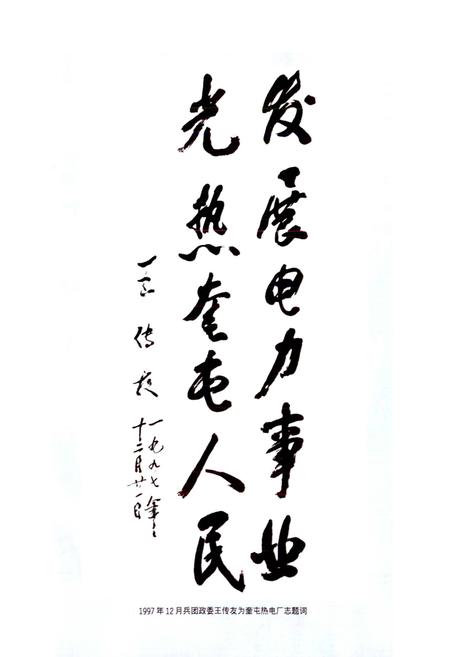 发展电力事业
光热奎屯人民
王传友
一九九七年
十二月廿一日
1997年12月兵团政委王传友为奎屯热电厂志题词